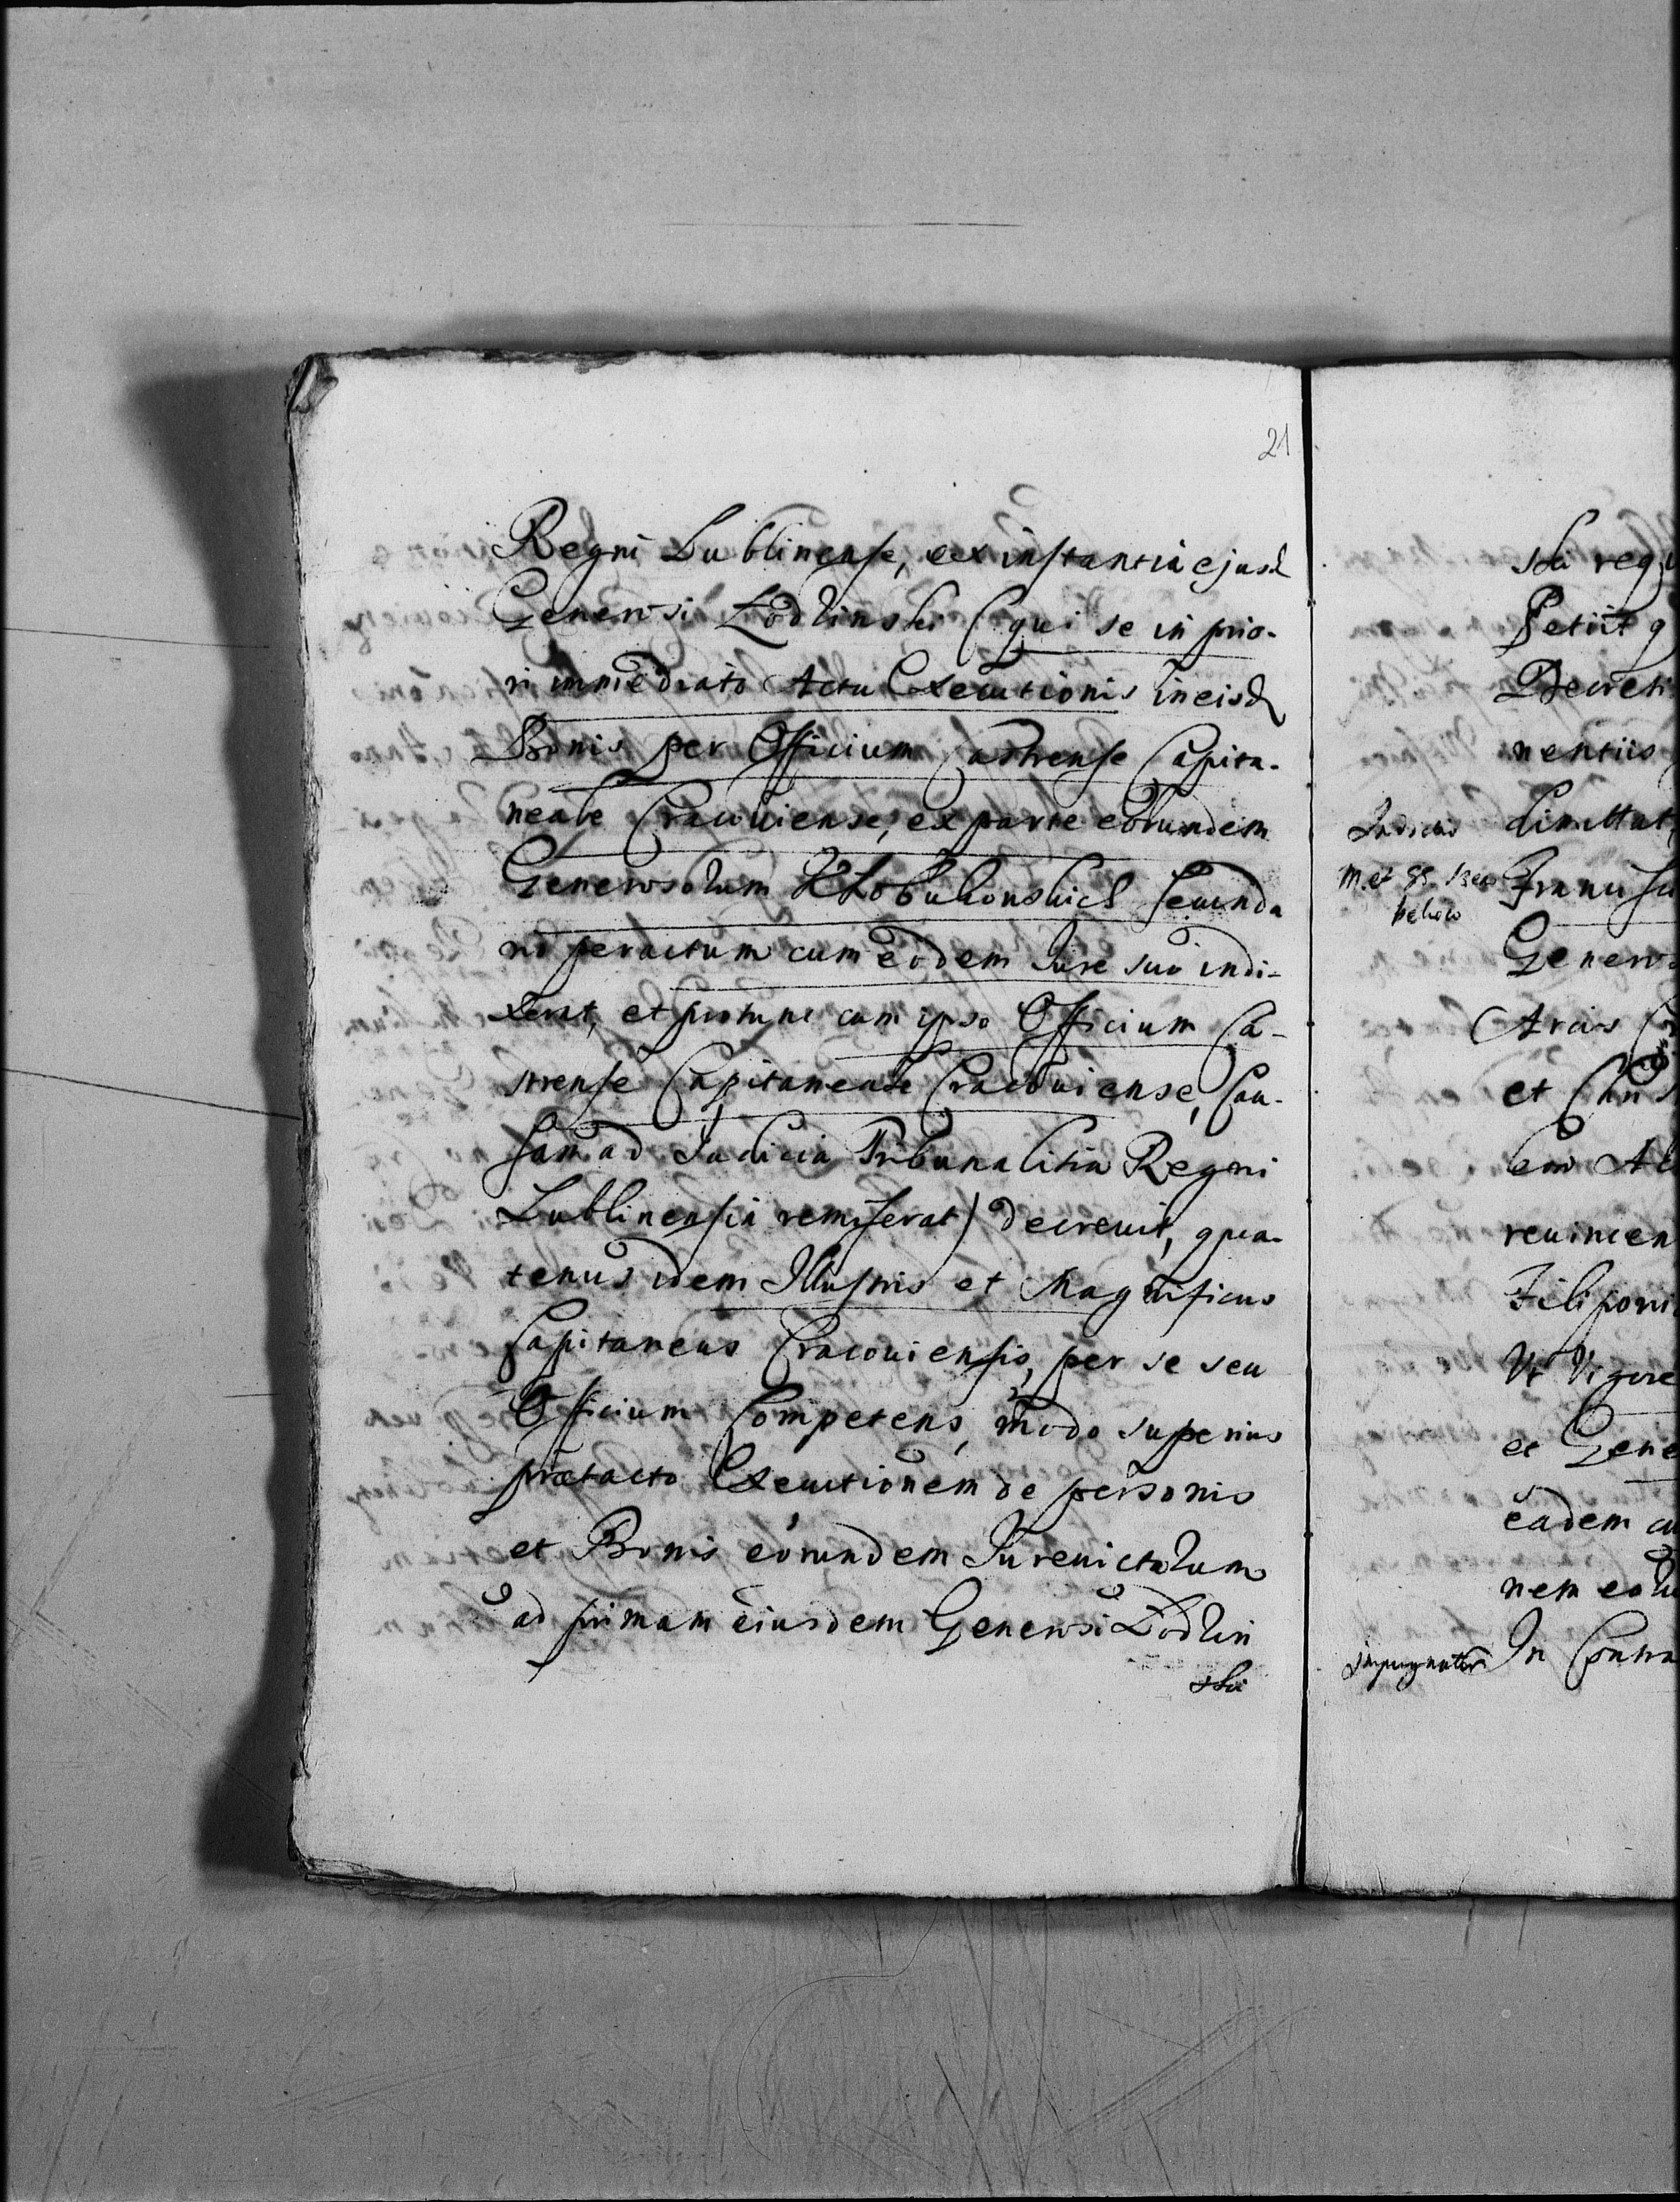 21
Regni Lublinense, ex instantia ejusd
Generosi Łodzinski (qui se in prio-
ri immediato Actu Executionis in eisd
Bonis per Officium Castrense Capita-
neale Cracouiense, ex parte eorundem
Generosorum secunda
rio peractum cum eodem Jure suo indi-
xerat, et protunc cum ipso Officium Ca-
strense Capitaneale Cracouiense, Cau-
sam ad Judicia Tribunalitia Regni
Lublinensia remiserat) decreuit, qua-
tenus idem Illustris et Magnificus
Capitaneus Cracouiensis, per se seu
Officium Competens, modo superius
prætacto Executionem de personis
et Bonis eorundem Jureuictorum
ad primam eiusdem Generosi Łodzin
ski
ski req
Petiit q
Decreti
nentiis
dimittat
Francisc
Genero
Arcis
et
eor
reuincen
Filiponi
Vt Vigore
et Gene
eadem cu
nem eoru
impugnatur In Contra